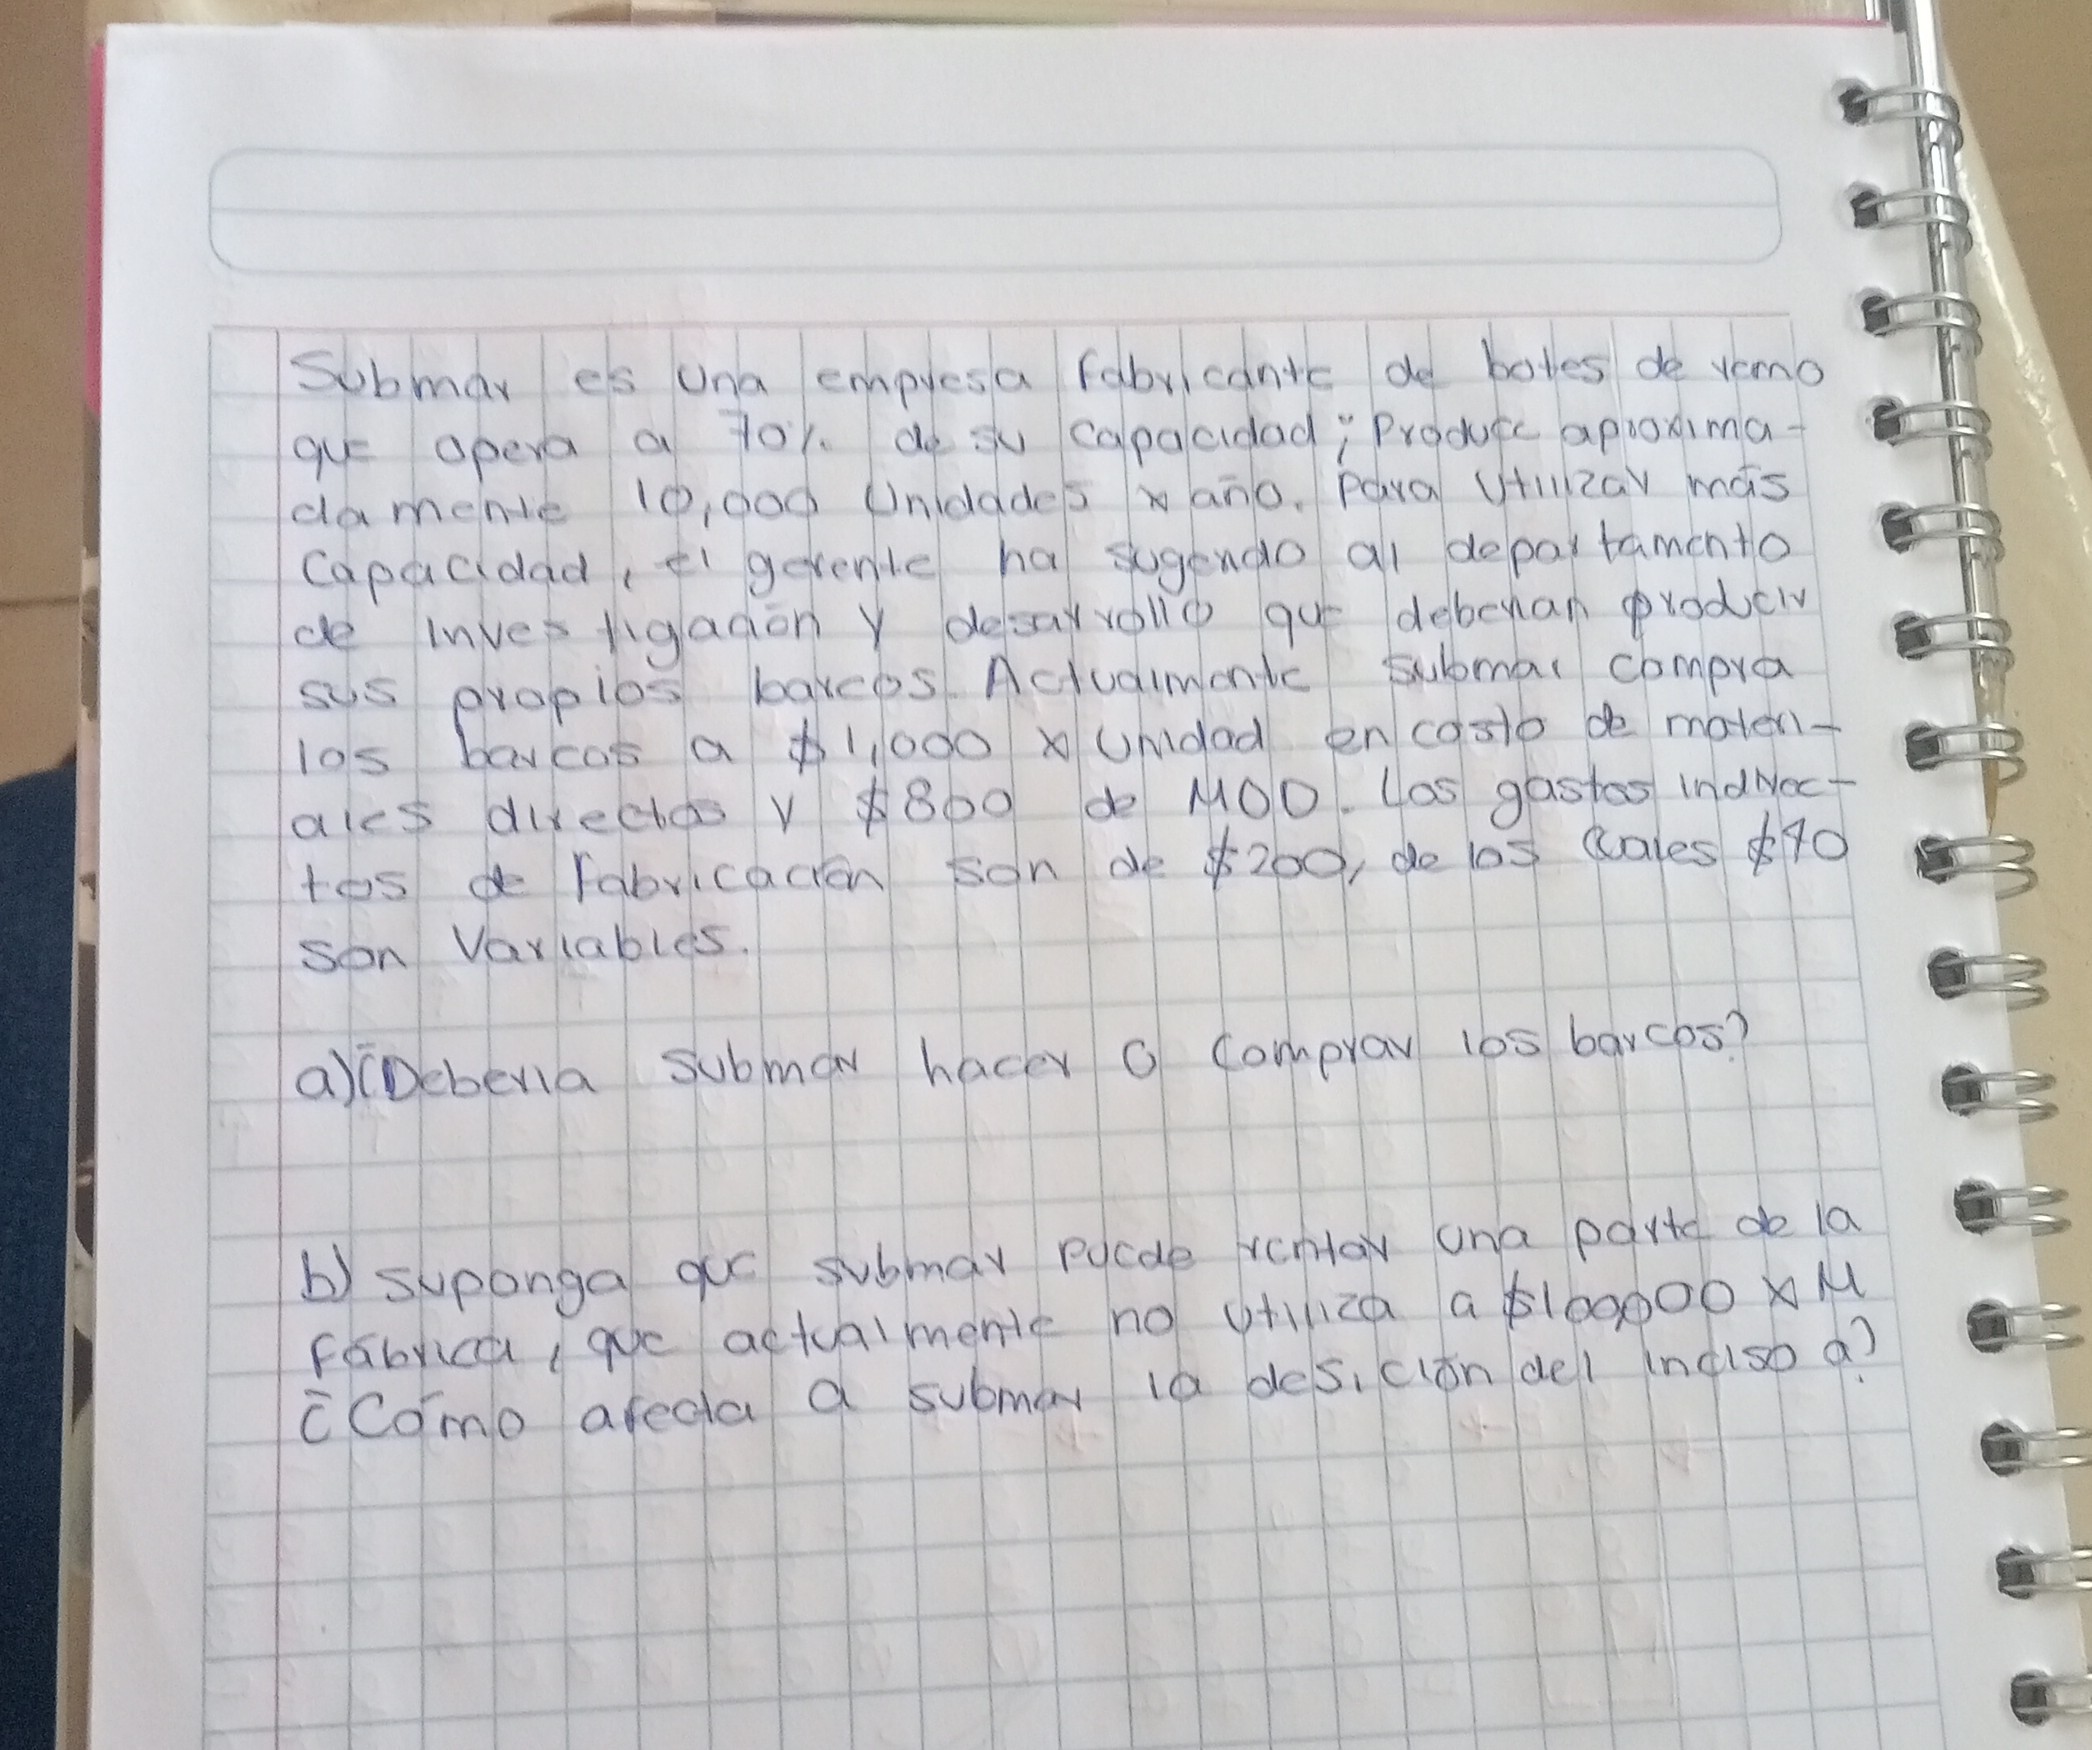 Submar es una empresa fabricante de botes de remo
que opera a 70% de su capacidad; Produce aproxima-
damente 10,000 Unidades x año. Para utilizar más
Capacidad, el gerente ha sugerido al departamento
de investigación y desarrollo que deberian producir
sus propios barcos. Actualmente submar compra
los barcos a $1,000 x unidad en costo de materi-
ales directos y $800 de MOD. Los gastos indirec-
tos de Fabricación son de $200, de los cuales $40
son Variables.
a) ¿Deberia submar hacer o comprar los barcos?
b) suponga que submar puede rentar una parte de la
Fábrica, que actualmente no utiliza a $100000 x M
¿Cómo afecta a submar la desición del inciso a?